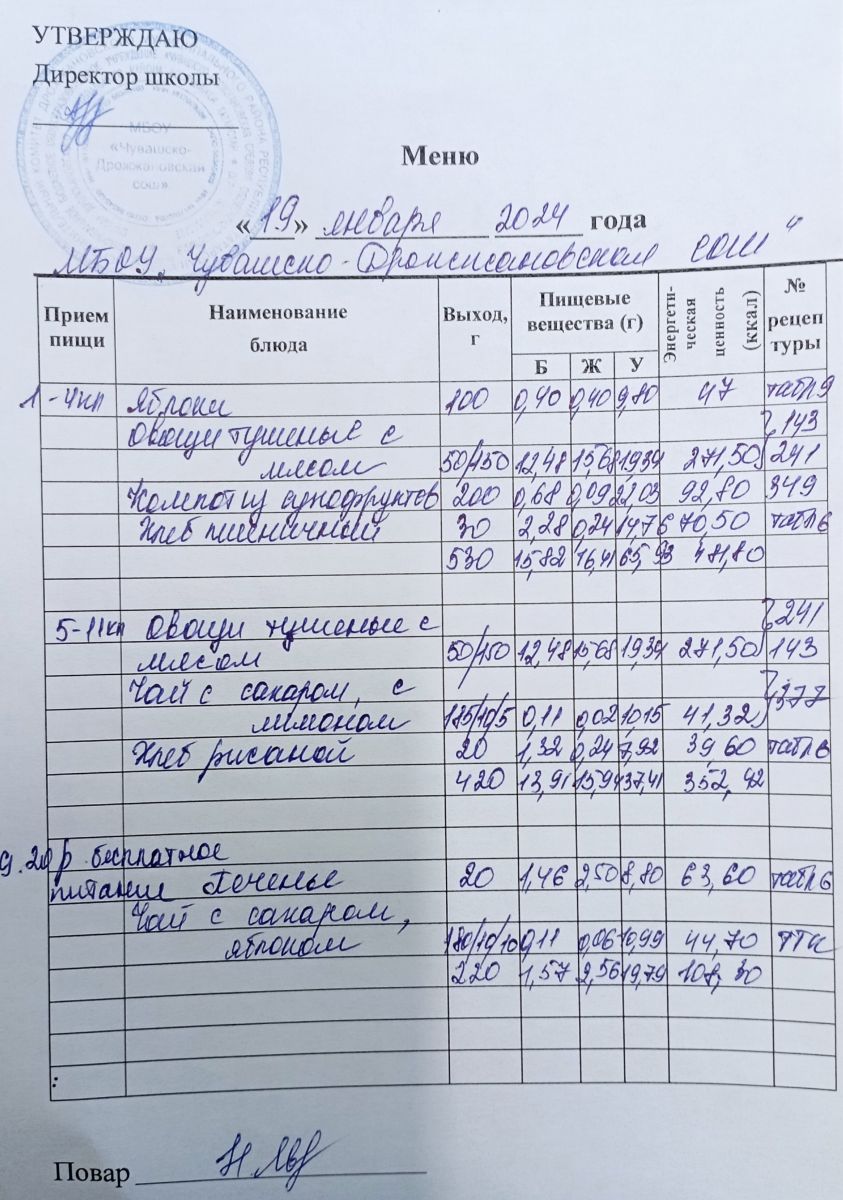 УТВЕРЖДАЮ
Директор школы
МБОУ
«Чувашско-
Дрожжановская
сош»
Меню
«19» января 2024 года
МБОУ „Чувашско-Дрожжановская сош"
Прием пищи Наименование блюда Выход, г Пищевые вещества (г) Б Ж У Энергетическая ценность (ккал) № рецептуры
1-4кл Яблоки 100 0,40 0,40 9,80 47 табл 9
Овощи тушеные с 143
мясом 50/150 12,48 15,68 19,34 271,50 241
Компот из сухофруктов 200 0,68 0,09 22,03 92,80 349
Хлеб пшеничный 30 2,28 0,24 14,76 70,50 табл 6
530 15,82 16,41 65,93 481,80
5-11кл Овощи тушеные с 241
мясом 50/150 12,48 15,68 19,34 271,50 143
Чай с сахаром, с 377
лимоном 185/10/5 0,11 0,02 10,15 41,32
Хлеб ржаной 20 1,32 0,24 7,92 39,60 табл 6
420 13,91 15,94 37,41 352,42
бесплатное
питание Печенье 20 1,46 2,50 8,80 63,60 табл 6
Чай с сахаром,
яблоком 180/10/10 0,11 0,06 10,99 44,70 ТТК
220 1,57 2,56 19,79 108,30
Повар